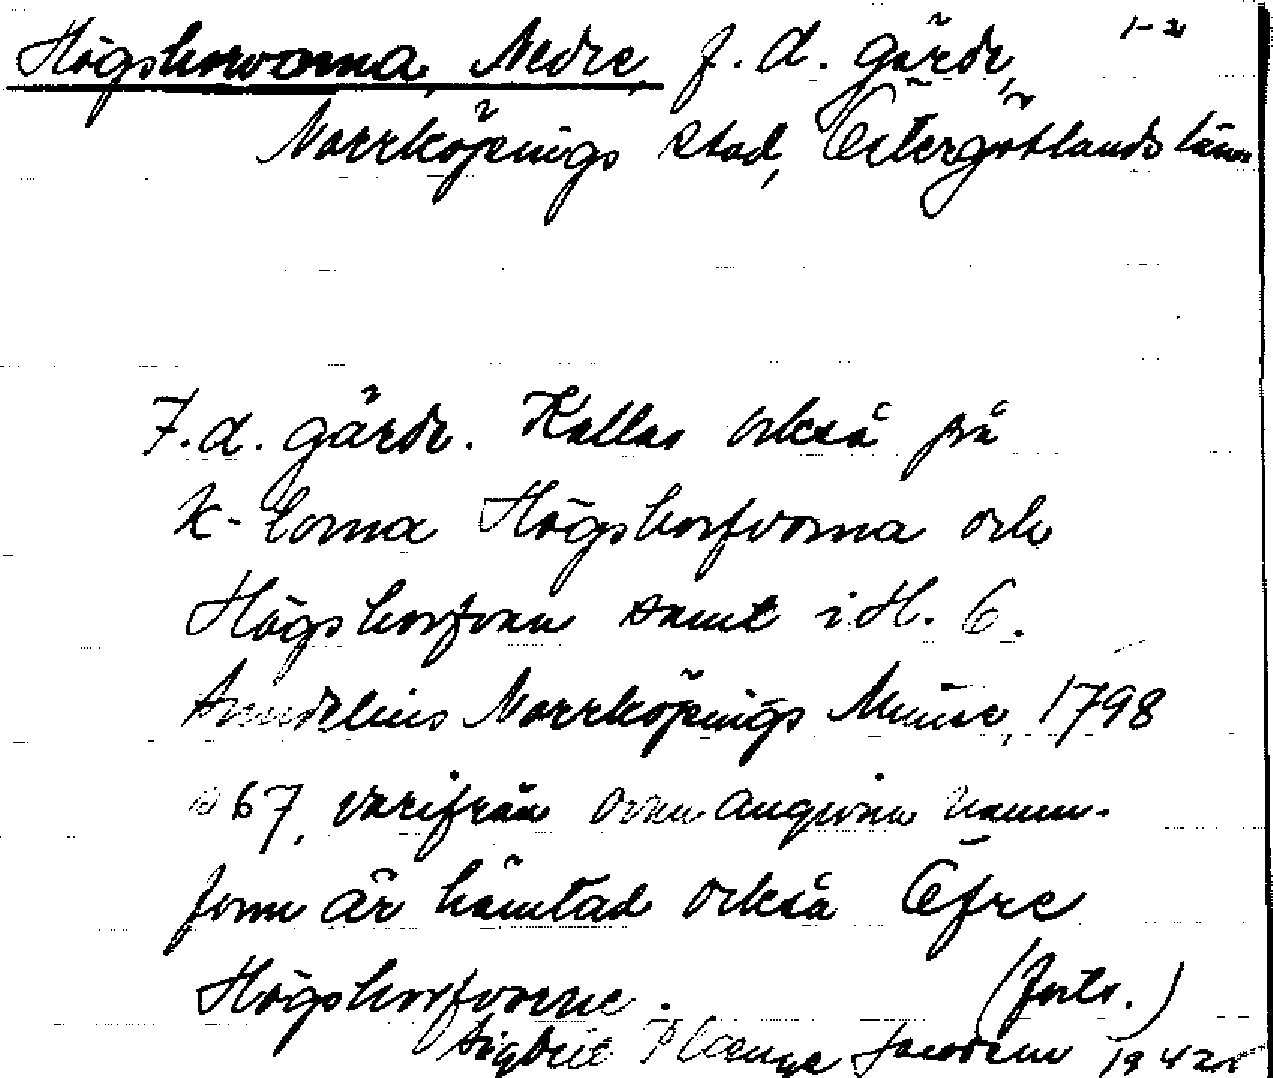 Högshorvorna, Nedre, f. d. gärde, 1-2
Norrköpings stad, Östergötlands län
F. d. gärde. Kallas också på
K-torna Högshorfvorna och
Högshorfvan samt i H. C.
Arndelius Norrköpings Minne, 1798
s 67, varifrån ovan angivna namn-
form är hämtad också Öfre
Högshorfvorne. (forts.)
Sigbrit Plænge Jacobson 1942